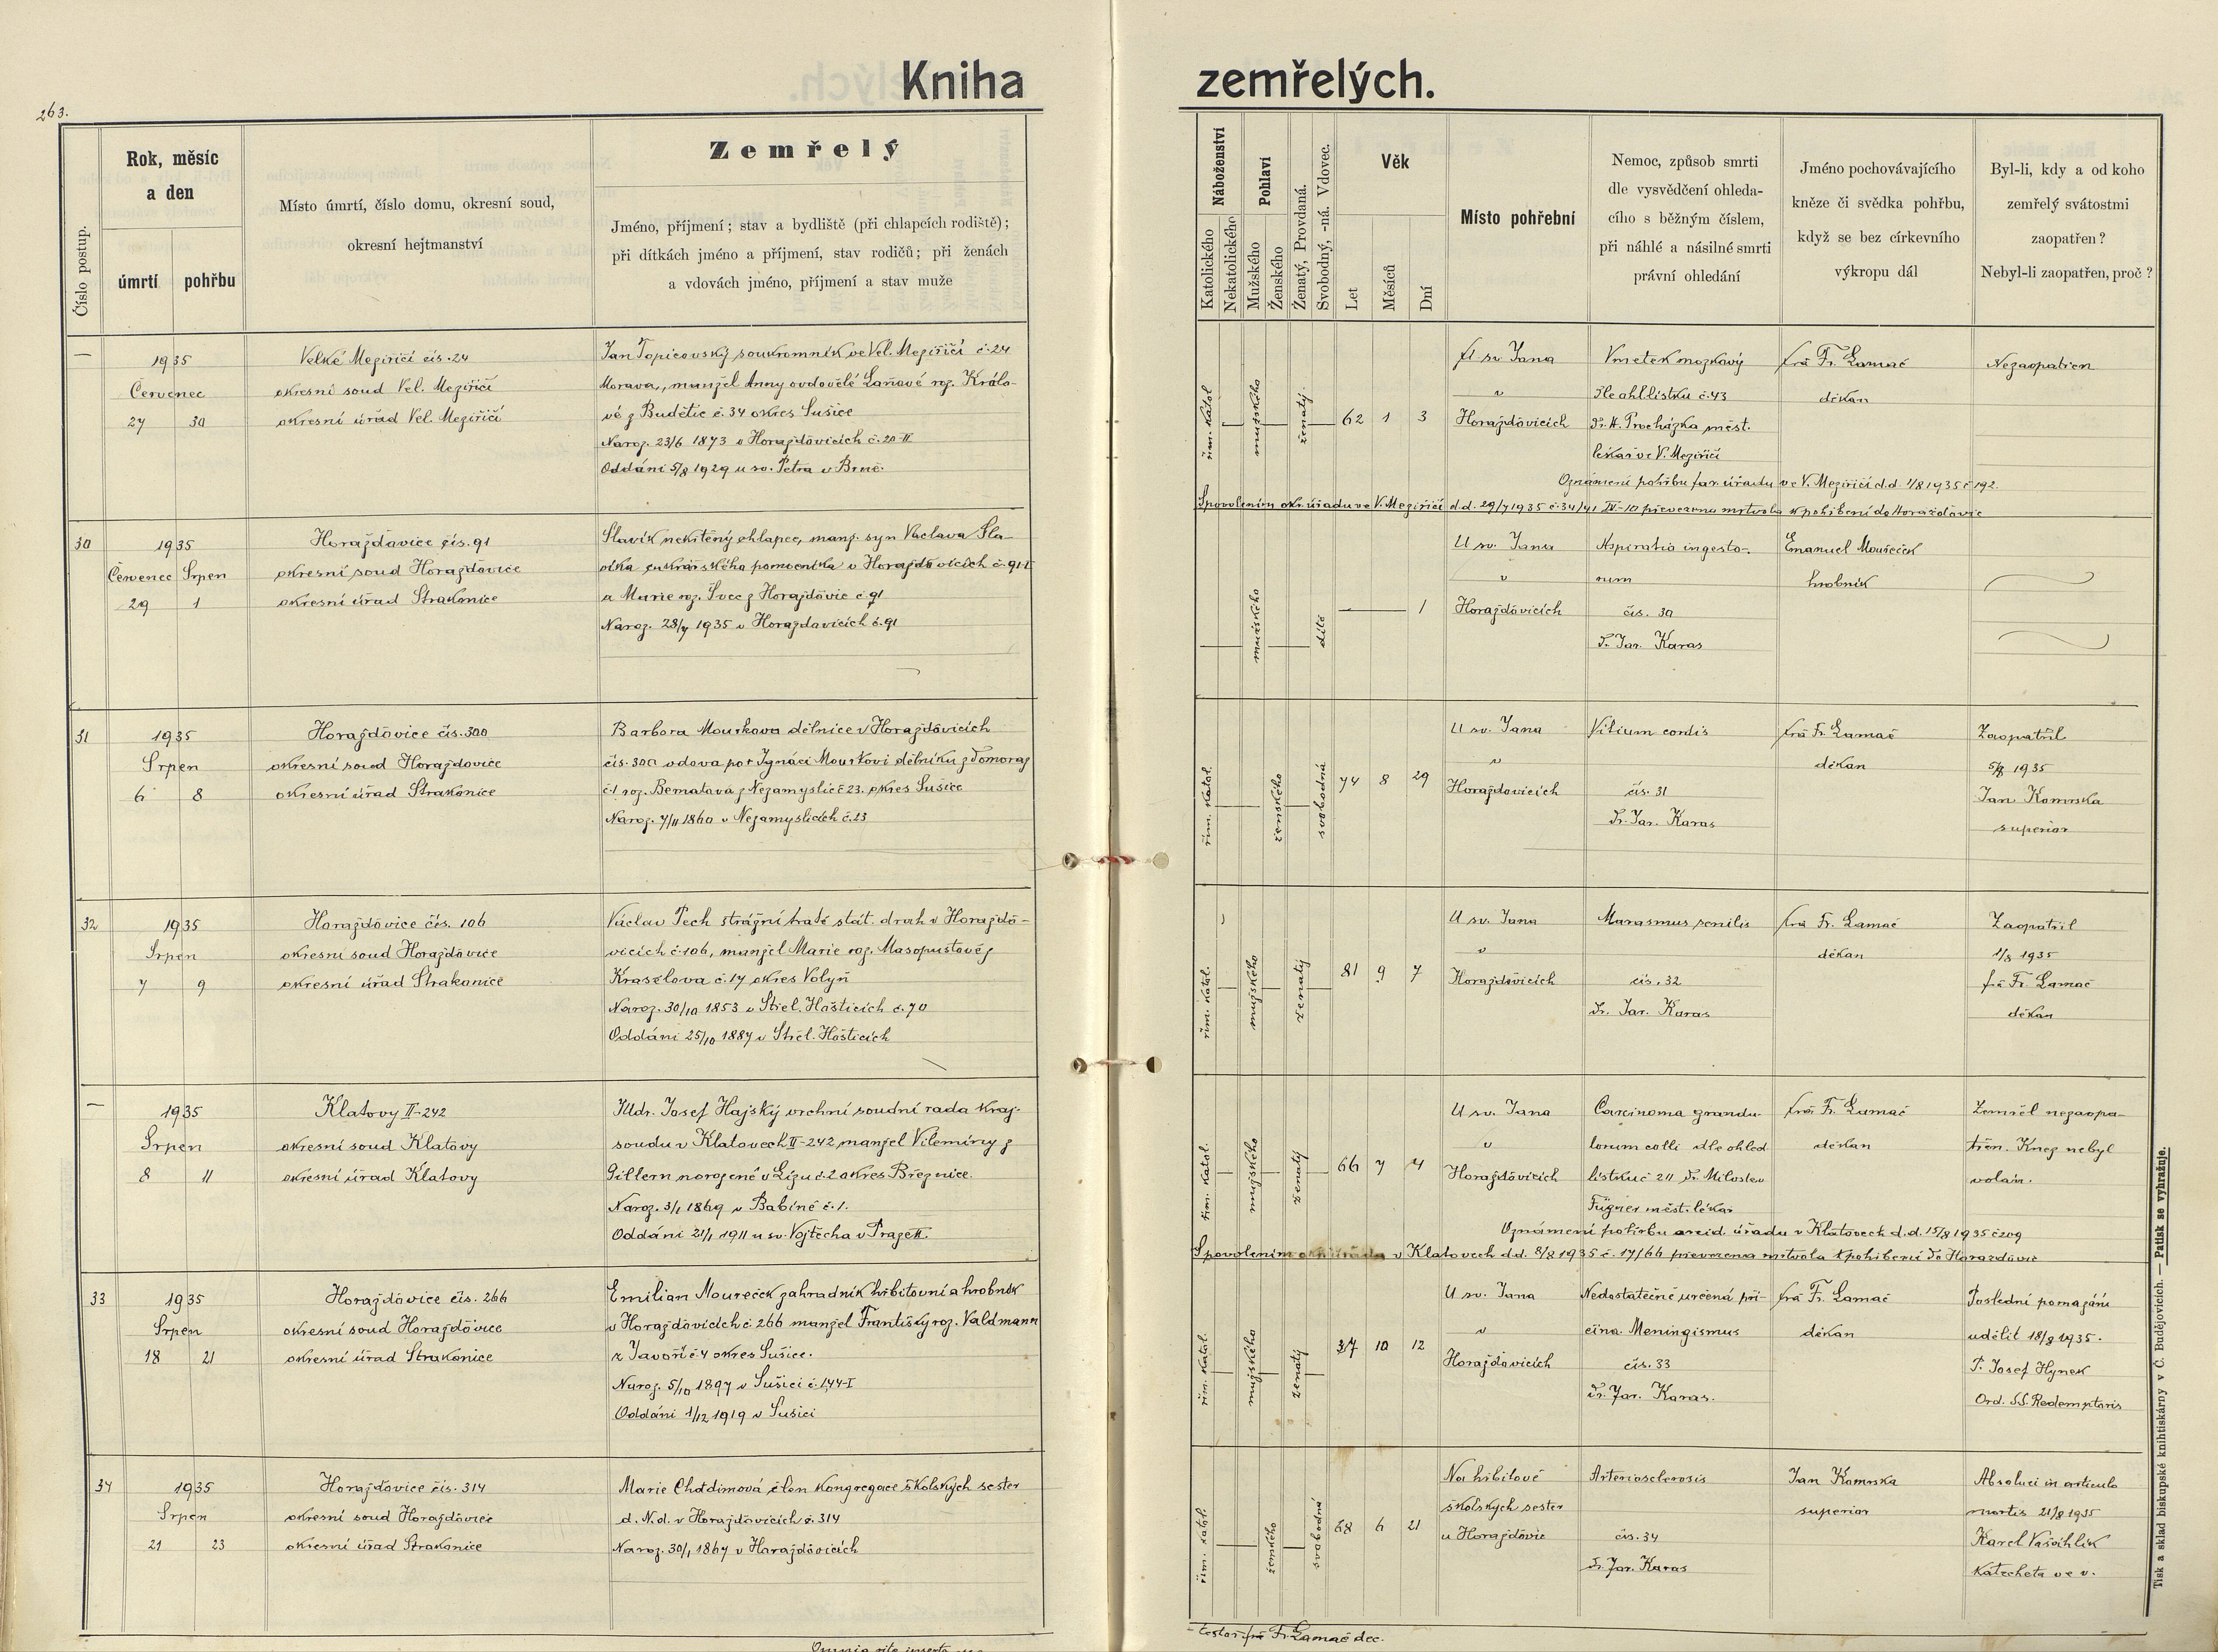 263.
Kniha zemřelých.
Číslo postup.
Rok, měsíc
a den
úmrtí
pohřbu
Místo úmrtí, číslo domu, okresní soud,
okresní hejtmanství
Zemřelý
Jméno, příjmení; stav a bydliště (při chlapcích rodiště);
při dítkách jméno a příjmení, stav rodičů; při ženách
a vdovách jméno, příjmení a stav muže
Náboženství
Katolického
Nekatolického
Pohlaví
Mužského
Ženského
Ženatý, Provdaná.
Svobodný, -ná. Vdovec.
Věk
Let
Měsíců
Dní
Místo pohřební
Nemoc, způsob smrti
dle vysvědčení ohleda-
cího s běžným číslem,
při náhlé a násilné smrti
právní ohledání
Jméno pochovávajícího
kněze či svědka pohřbu,
když se bez církevního
výkropu dál
Byl-li, kdy a od koho
zemřelý svátostmi
zaopatřen?
Nebyl-li zaopatřen, proč?
—
1935
Červenec
27 30
Velké Meziříčí čís. 24
okresní soud Vel. Meziříčí
okresní úřad Vel. Meziříčí
Jan Topicovský soukromník ve Vel. Meziříčí č. 24
Morava, manžel Anny ovdovělé Laňové roz. Králo-
vé z Budětic č. 34 okres Sušice
Naroz. 23/6 1873 v Horažďovicích č. 20-II
Oddáni 5/8 1929 u sv. Petra v Brně.
řím. katol
mužského
ženatý
62 1 3
U sv. Jana
v
Horažďovicích
Vmetek mozkový
Dle ohl. lístku č. 43
Dr. A. Procházka měst.
lékař ve V. Meziříčí
frá Fr. Lamač
děkan
Nezaopatřen
Oznámení pohřbu far. úřadu ve V. Meziříčí d.d. 1/8 1935 č 192.
S povolením okr. úřadu ve V. Meziříčí d.d. 29/7 1935 č. 34/41 IV-10 převezena mrtvola k pohřbení do Horažďovic
30
1935
Červenec Srpen
29 1
Horažďovice čís. 91
okresní soud Horažďovice
okresní úřad Strakonice
Slavík nekřtěný chlapec, manž. syn Václava Sla-
víka cukrářského pomocníka v Horažďovicích č. 91-I
a Marie roz. Švec z Horažďovic č 91
Naroz. 28/7 1935 v Horažďovicích č. 91
mužského
dítě
1
U sv. Jana
v
Horažďovicích
Aspiratio ingesto-
rum
čís. 30
Dr. Jar. Karas
Emanuel Moureček
hrobník
31
1935
Srpen
6 8
Horažďovice čís. 300
okresní soud Horažďovice
okresní úřad Strakonice
Barbora Mourkova dělnice v Horažďovicích
čís. 300 vdova po † Ignáci Mourkovi dělníku z Domoraz
č. 1 roz. Bernatová z Nezamyslic č 23. okres Sušice
Naroz. 7/11 1860 v Nezamyslicích č. 23
řím. katol.
ženského
svobodná
74 8 29
U sv. Jana
v
Horažďovicích
Vitium cordis
čís. 31
Dr. Jar. Karas
frá Fr. Lamač
děkan
Zaopatřil
5/8 1935
Jan Komrska
superior
32
1935
Srpen
7 9
Horažďovice čís. 106
okresní soud Horažďovice
okresní úřad Strakonice
Václav Pech strážní tratě stát. drah v Horažďo-
vicích č. 106, manžel Marie roz. Masopustové z
Krasělova č. 17 okres Volyň
Naroz. 30/10 1853 v Střel. Hošticích č. 70
Oddáni 25/10 1887 v Střel. Hošticích
řím. katol.
mužského
ženatý
81 9 7
U sv. Jana
v
Horažďovicích
Marasmus senilis
čís. 32
Dr. Jar. Karas
frá Fr. Lamač
děkan
Zaopatřil
1/8 1935
frá Fr. Lamač
děkan
—
1935
Srpen
8 11
Klatovy II-242
okresní soud Klatovy
okresní úřad Klatovy
JUdr. Josef Hajský vrchní soudní rada kraj.
soudu v Klatovech II-242 manžel Vilemíny z
Gillern narozené v Lízu č. 2 okres Březnice.
Naroz. 3/1 1869 v Babíně č. 1.
Oddáni 21/1 1911 u sv. Vojtěcha v Praze II.
řím. katol.
mužského
ženatý
66 7 4
U sv. Jana
v
Horažďovicích
Carcinoma grandu-
lorum colli dle ohled
lístku č 211 Dr. Miloslav
Fügner měst. lékař
frá Fr. Lamač
děkan
Zemřel nezaopa-
třen. Kněz nebyl
volán.
Oznámení pohřbu arcid. úřadu v Klatovech d.d. 15/8 1935 č 209
S povolením okr. úřadu v Klatovech d.d. 8/8 1935 č. 17/66 převezena mrtvola k pohřbení do Horažďovic
33
1935
Srpen
18 21
Horažďovice čís. 266
okresní soud Horažďovice
okresní úřad Strakonice
Emilian Moureček zahradník hřbitovní a hrobník
v Horažďovicích č 266 manžel Františky roz. Valdmann
z Javoří č 4 okres Sušice.
Naroz. 5/10 1897 v Sušici č. 144-I
Oddáni 1/12 1919 v Sušici
řím. katol.
mužského
ženatý
37 10 12
U sv. Jana
v
Horažďovicích
Nedostatečně určená pří-
čina. Meningismus
čís. 33
Dr. Jar. Karas.
frá Fr. Lamač
děkan
Poslední pomazání
udělil 18/8 1935.
P. Josef Hynek
Ord. SS. Redemptoris
34
1935
Srpen
21 23
Horažďovice čís. 314
okresní soud Horažďovice
okresní úřad Strakonice
Marie Chotdimová člen kongregace školských sester
d. N. d. v Horažďovicích č. 314
Naroz. 30/1 1867 v Horažďovicích
řím. katol.
ženského
svobodná
68 6 21
Na hřbitově
školských sester
u Horažďovic
Arteriosclerosis
čís. 34
Dr. Jar. Karas
Jan Komrska
superior
Absoluci in articulo
mortis 21/8 1935
Karel
katecheta ve v.
Omnia rite inserta
testor frá Fr. Lamač dec.
Tisk a sklad biskupské knihtiskárny v Č. Budějovicích. — Patisk se vyhražuje.